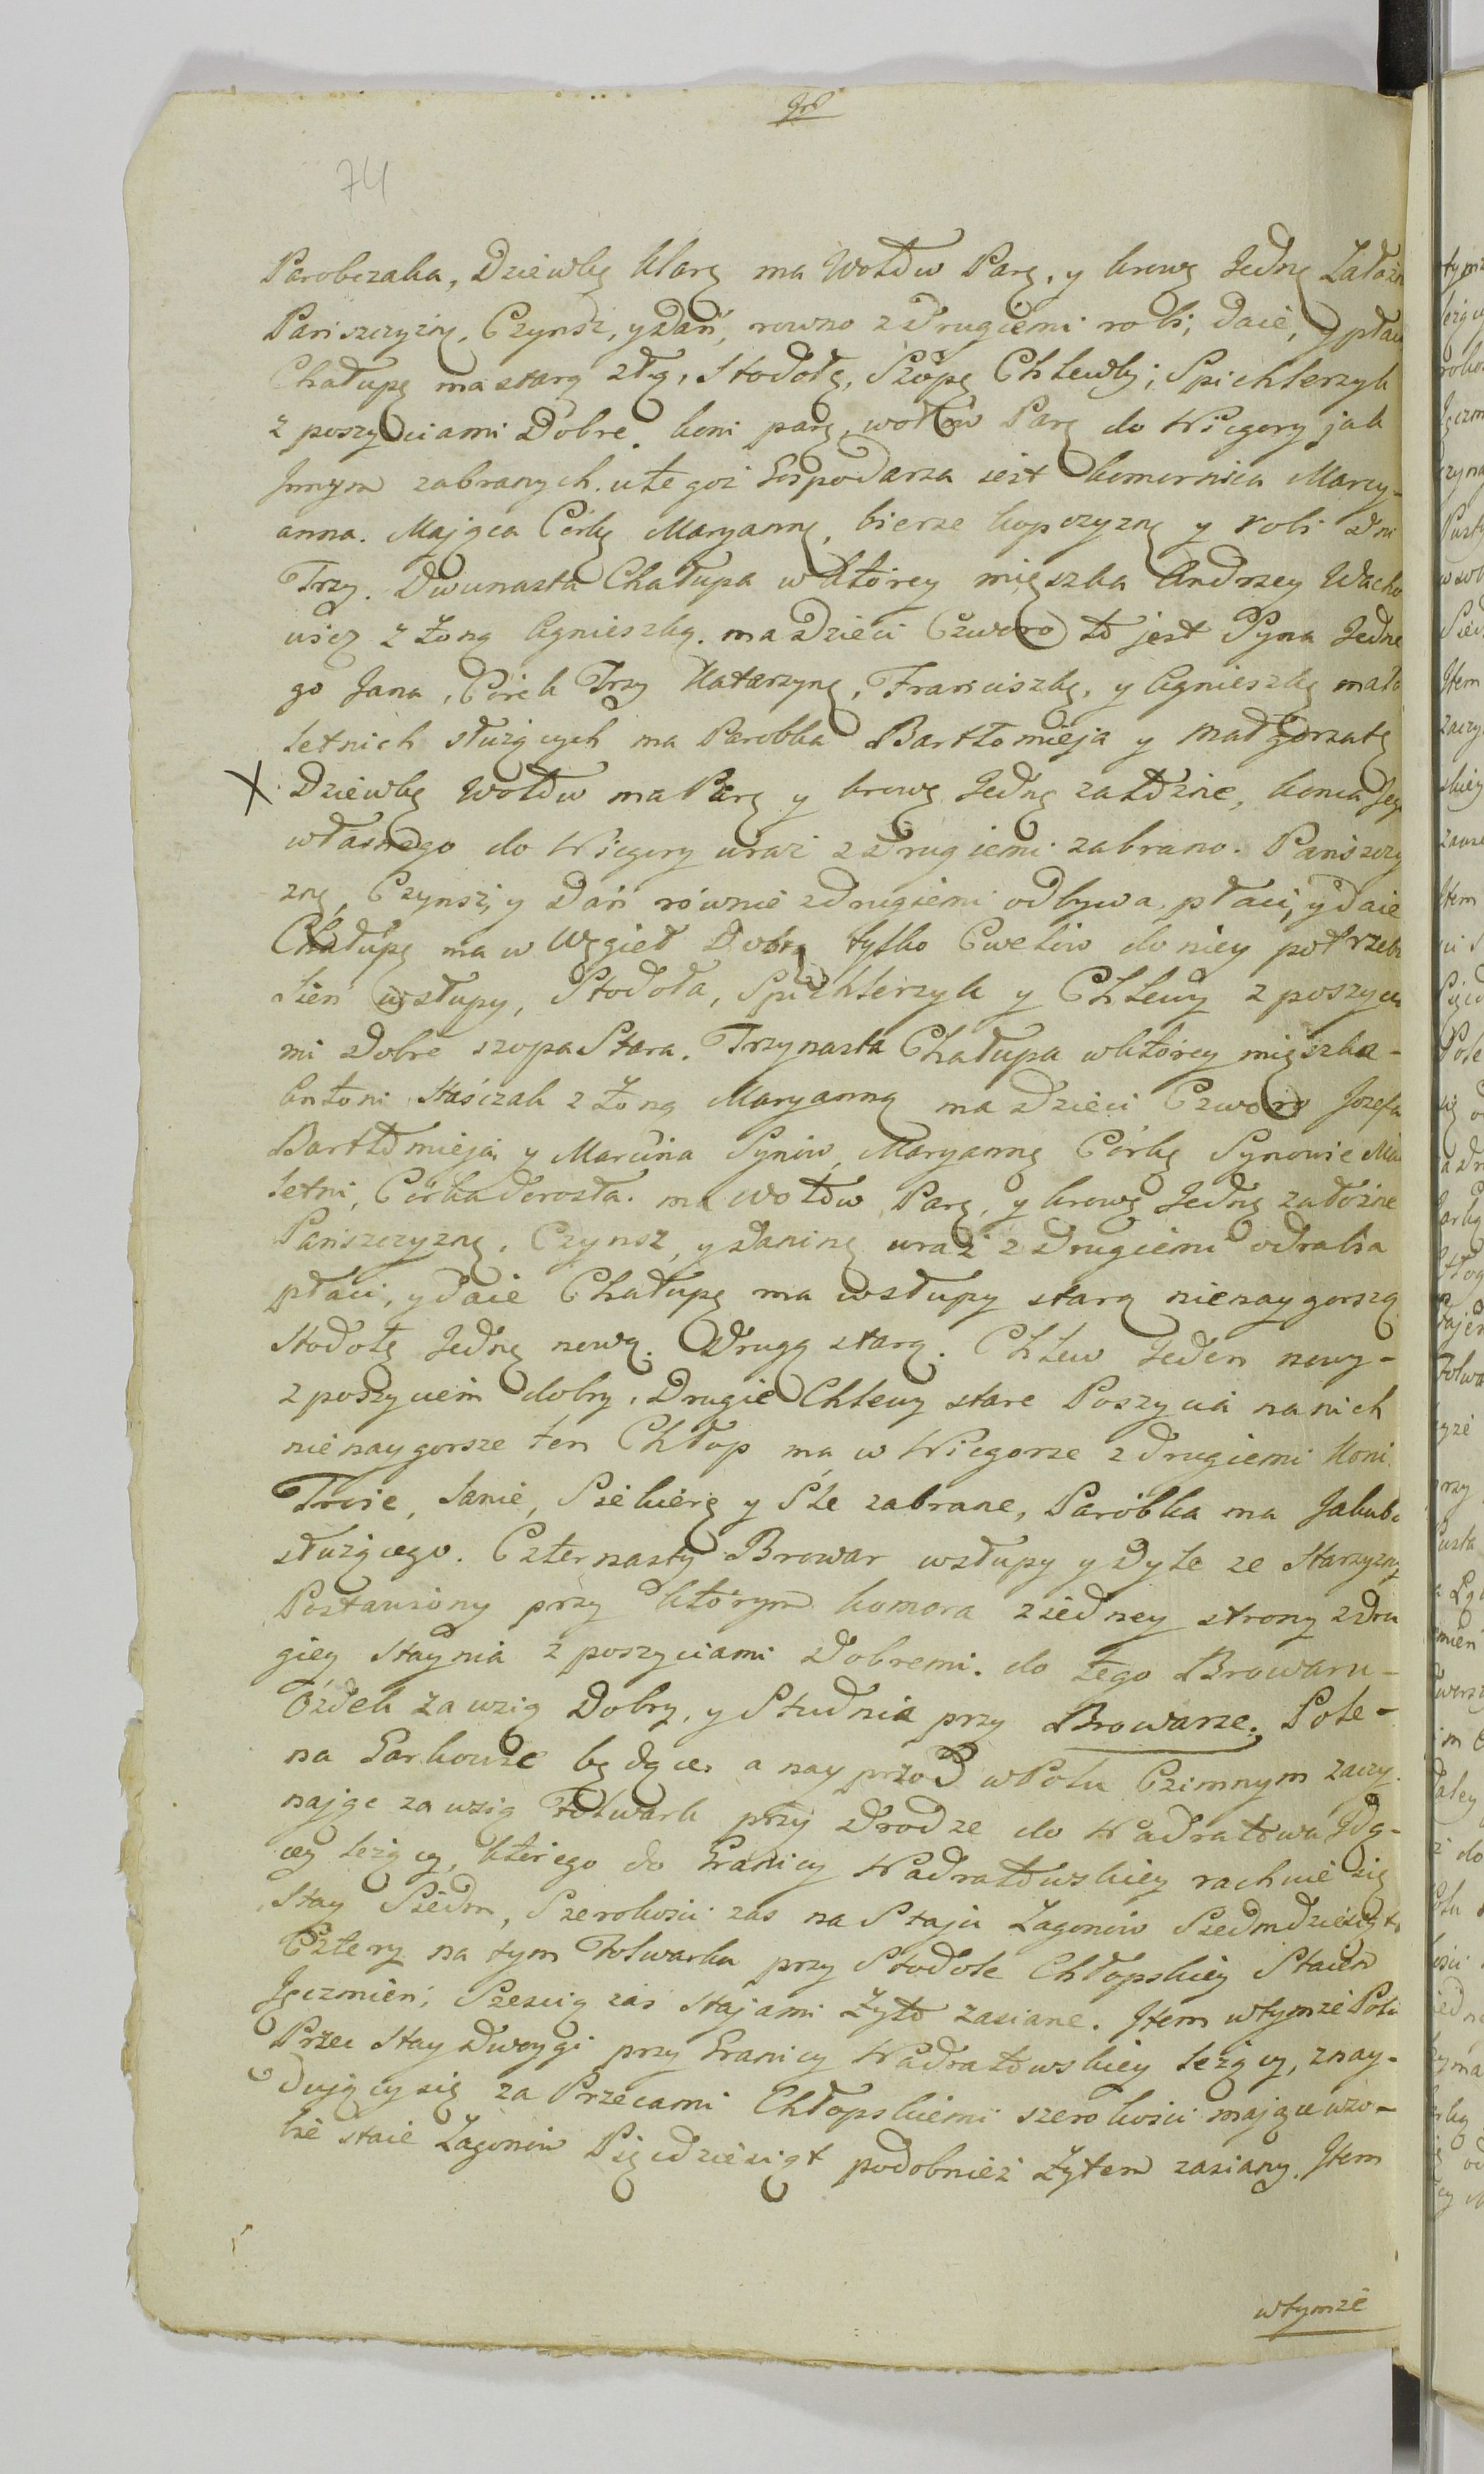 74
Parobczaka, Dziewkę Klarę ma Wołow Parę, y krowę Jednę Załozn
Pańszczyznę, Czynsz, y Dań, rowno z Drugiemi robi, daie, y płaci
Chałupę ma starą złą, Stodołę, Szopę Chlewki, Spichlerzyk
z poszyciami Dobre. koni parę, wołów Parę do Wiegory jak
Innym zabranych. u tegoż Gospodarza iest komornica Mary-
anna. Mająca Córkę Maryannę, bierze kopczyznę y robi Dni
Trzy. Dwunasta Chałupa w ktorey mięszka Andrzey Wacho
uicz z Zoną Agnieszką. ma Dzieci Czworo to jest Syna Jedne
go Jana, Córek Trzy Katarzynę, Franciszkę, y Agnieszkę mało
letnich służących ma Parobka Bartłomieja y Małgorzatę
X Dziewkę Wołow ma Parę y krowę Jednę załozne, konia Jego
własnego do Wiegory uraz z Drugiemi zabrano. Pańszczy
znę, Czynsz, y Dań równie z drugiemi odbywa, płaci, y daie
Chałupę ma w Węgieł Dobrą tylko Cwelów do niey potrzeba
Sień wsłupy, Stodoła, Spichlerzyk y Chlewy z poszycia
mi Dobre szopa Stara. Trzynasta Chałupa w ktorey mięszka-
Antoni Staśczak z Zoną Maryanną ma Dzieci Czworo Jozefa
Bartłomieja, y Marcina Synów, Maryannę Córkę Synowie Mało
letni, Córka dorosła. ma wołow Parę, y krowę Jednę załozne
Pańszczyznę, Czynsz, y Daninę uraz z Drugiemi odrabia
płaci, y daie Chałupę ma wsłupy starą nienaygorszą
Stodołę Jednę nową. Drugą starą. Chlew Jeden nowy-
z poszyciem dobry, Drugie Chlewy stare Poszycia na nich
nienaygorsze ten Chłop ma w Wiegorze z drugiemi Koni
Troie, Sanie, Siekierę y Śle zabrane, Paróbka ma Jakuba
służącego. Czternasty Browar wsłupy y Dyle ze Starzyzny
Postawiony przy ktorym komora ziedney strony z Dru
giey Staynia z poszyciami Dobremi. do tego Browaru-
Ozdek zawzią Dobry, y Studnia przy Browarze. Pole-
na Garkowie będące. a nayprzod w Polu Czimnym zaczy
nając zawzią Folwark przy drodze do Wadratowa Idą-
cey leżący, którego do Granicy Wadratowskiey rachuie się
Stay Siedm, Szerokosci zas na Staju Zagonów Siedmdziesiąt
Cztery na tym Folwarku przy Stodole Chłopskiey Staien
Jęczmień, Sześcią zaś Stajami Zyto zasiane. Item w tymze Polu
Przec Stay Dwoygi przy Granicy Wadratowskiey leżący, znay-
dujący się za Przecami Chłopskiemi szerokosci mające wzo-
bie staie Zagonów Pięcdziesiąt podobnież Zytem zasiany. Item
wtymże